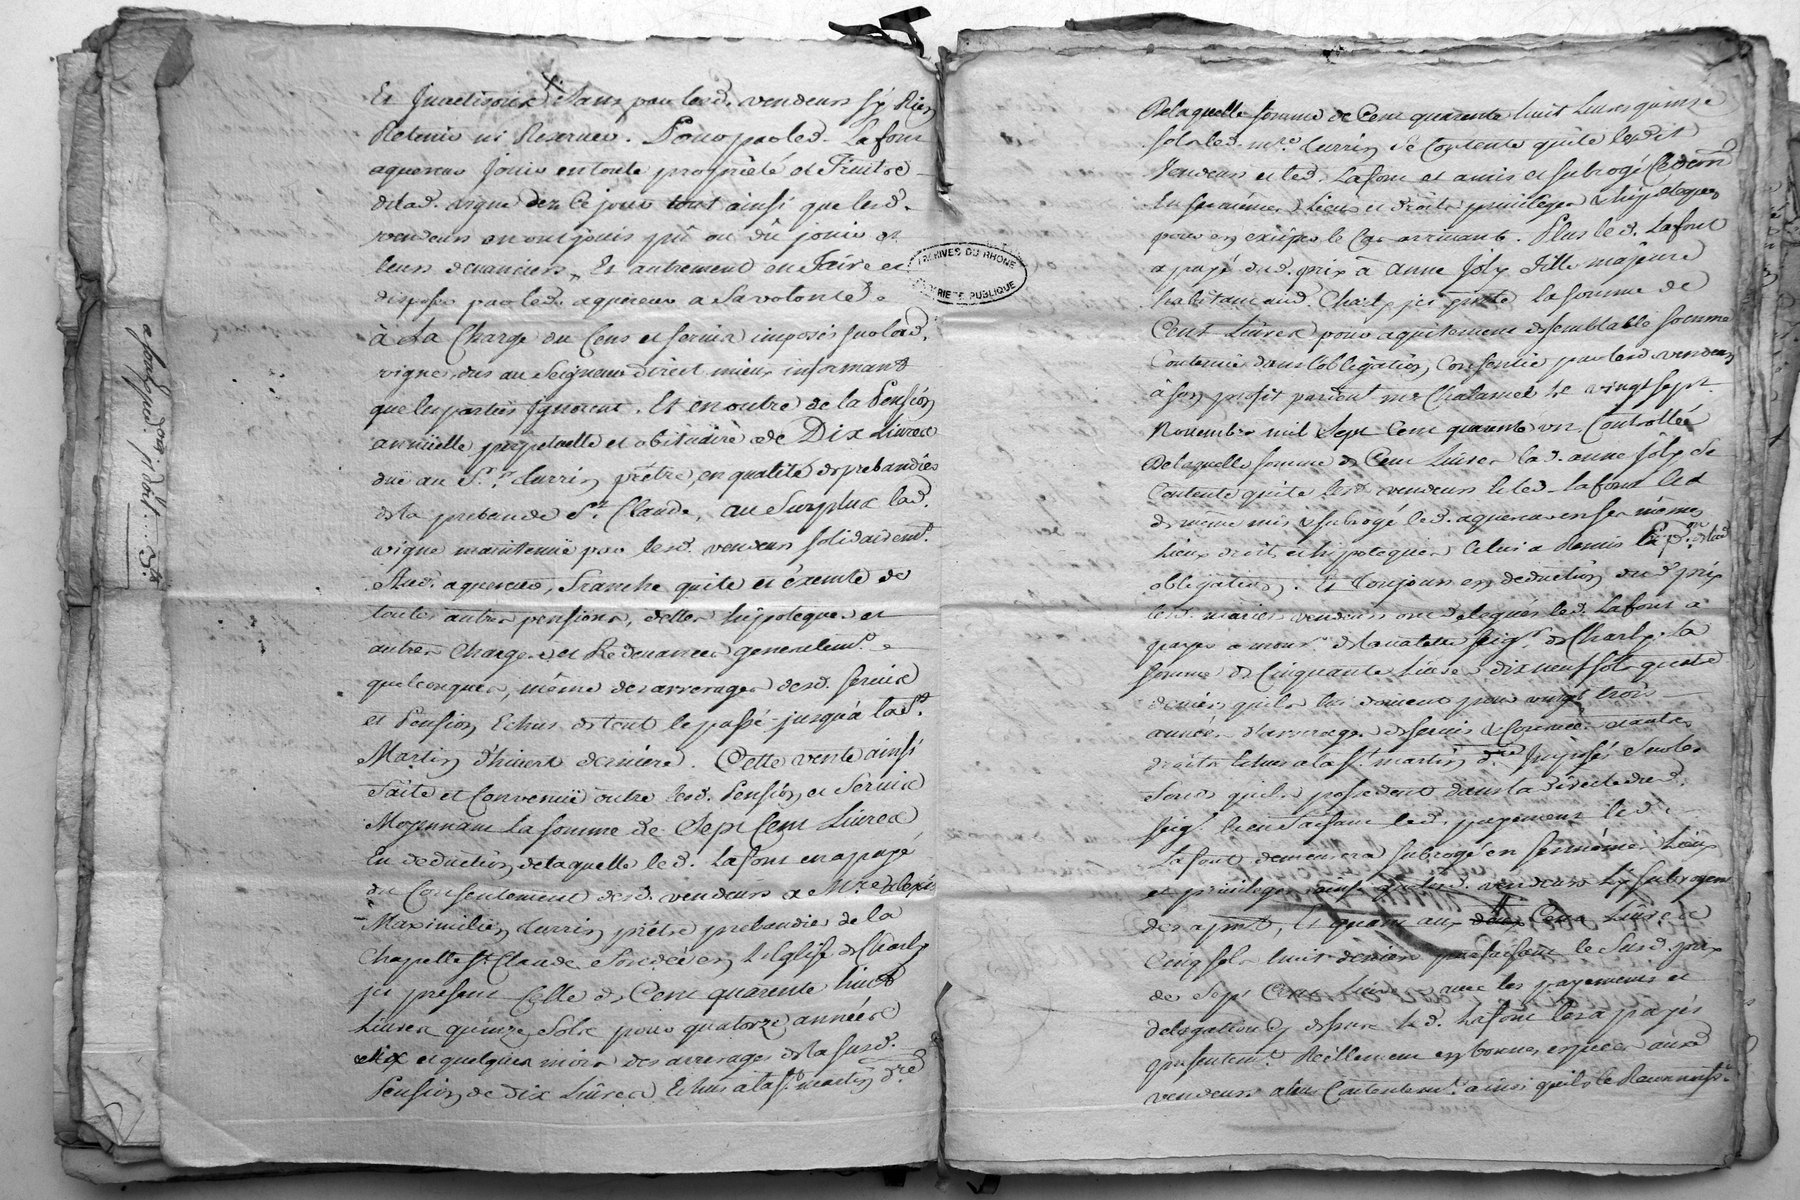 Et Sans par lesd. vendeurs s'y Rien
Retenir ni Reserver. Pour par led. Lafont
aquereur Jouir en toute proprieté et Fruit de
dela d. vigne dez ce jour tout ainsi que lesd.
vendeurs en ont jouis pû ou dû jouir et
leurs devanciers, Et autrement en Faire et
disposer par led. aquereur a Sa volonté.
à La Charge du Cens et servis imposés sur lad.
vigne, dus au Seigneur direct mieux informant
que les parties Ignorent. Et en outre de la Pension
annuelle perpetuelle et de Dix Livres
duë au Sr. Currin prêtre, en qualité de prebandier
de la prebande St. Claude, au Surplux lad.
vigne maintenuë par lesd. vendeurs solidairemt.
Aud. aquereur, Franche quite et éxemte de
toutes autres pensions, dettes hipoteques et
autres Charges et Redevances generalemt.
quelconques, même des arrerages desd. servis
et Pension Echus de tout le passé jusqu'à la St.
Martin d'hivert derniere. Cette vente ainsi
Faite et Convenuë outre lesd. Pension et Servis
Moyennant La somme de Sept Cent Livres
En deduction de laquelle led. Lafont en a payé
du Consentement desd. vendeurs a Mre alexis
Maximilien Currin prêtre prebandier de la
Chapelle St. Claude Fondée en L'Eglise de Charly
ici present Celle de Cent quarente huit
Livres quinze Sols pour quatorze années
dix et quelques mois des arrerages de la susd.
Pension de dix Livres Echus a la St. martin dre
ARCHIVES DU RHONE
PROPRIETE PUBLIQUE
De laquelle somme de Cent quarente huit Livres quinze
sols led. mre. Currin se Contente quite lesdit
Vendeurs et led. Lafont et amis et subrogé
En ses mêmes Lieux et droits privileges & hipoteques
pour en exiper le Cas arrivant. Plus led. Lafont
a payé dud. prix à Anne Joly Fille majeure
habitant aud. Charly ici prte La somme de
Cent Livres pour aquitement de semblable somme
Contenuë dans l'obligation Consentie par lesd. vendeurs
à son profit pardevt. mre Chalamel le vingt sept
Novembre mil Sept Cent quarente un Controllée
De laquelle somme de Cent Livres la d. anne Joly se
Contente quite lesd. vendeurs et led. Lafont led.
de même mis & subrogé led. aquereur en ses mêmes
Lieux droits et hipoteques et lui a Remis
obligation. Et Toujours en deduction dud. prix
lesd. mariés vendeurs ont delegués led. Lafont a
payer a monsr. seigr. de Charly. La
somme de Cinquante Livres dix neuf sols
deniers quils lui doivent pour vingt trois
années d'arrerages de servis & autres
droits Echus a la St. martin dre Imposés Sur les
Fonds quils possedent dans la Directe dud.
seigr. bien Faisant led. payement led.
Lafont demeurera subrogé en ses mêmes Lieux
et privileges ainsi que lesd. vendeurs Ly subrogent
des a prent. Et quant aux Cent Livres
Cinq sols huit deniers parfaisant le Susd. prix
de Sept Cent Livres avec les payements et
delegation cy dessus led. Lafont les a payés
presentemt. Réellement en bonnes especes ausd.
vendeurs a leur Contentemt. ainsi quils le Reconnoisst.